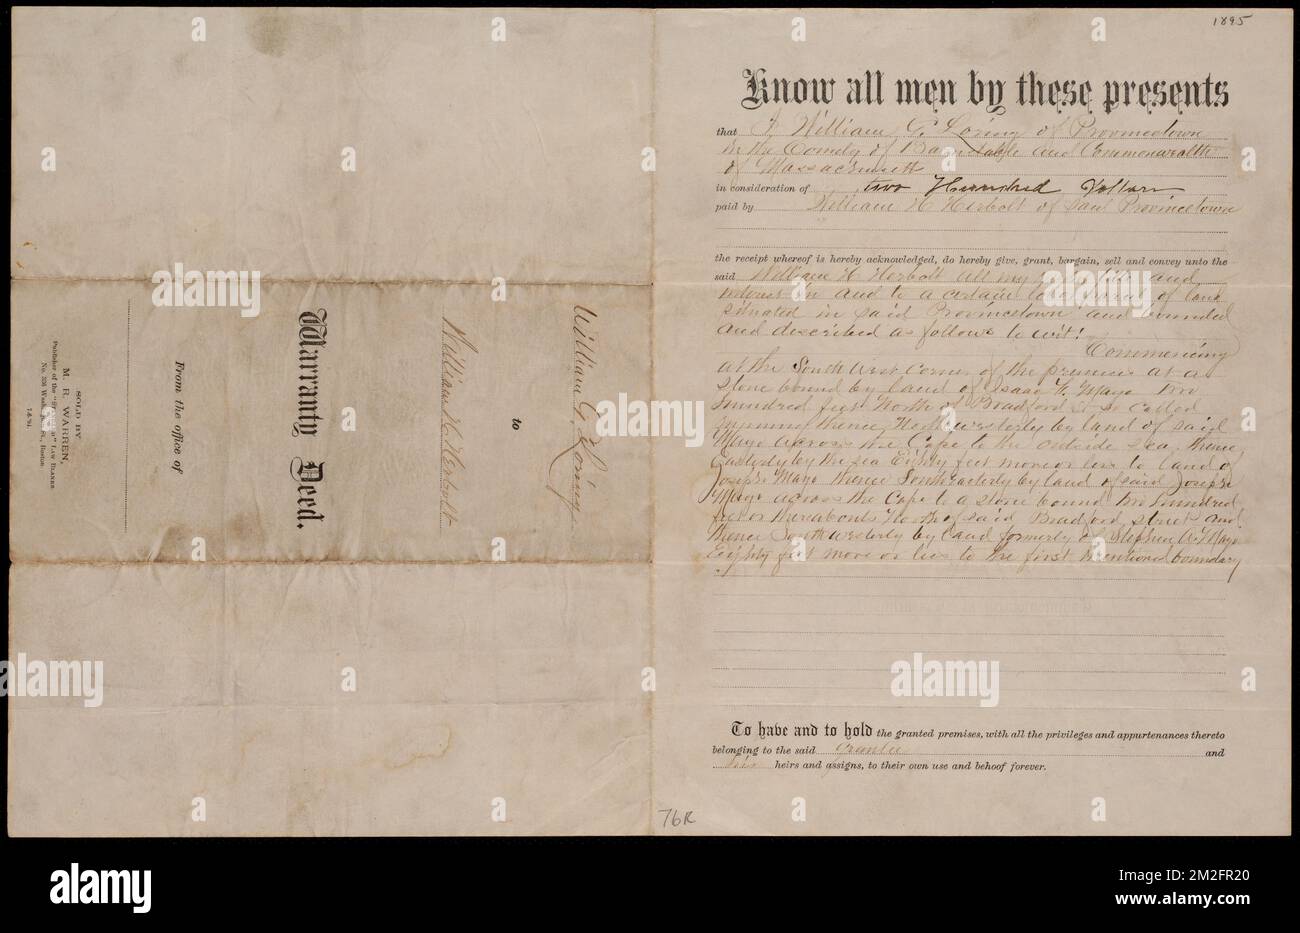 William G. Loring
to
William H. Herbolt
Warranty Deed.
From the office of
SOLD BY
M. R. WARREN,
Publisher of the "STANDARD" LAW BLANKS
No. 336 Washington St., Boston
1895
Know all men by these presents
that I, William G. Loring of Provincetown
in the County of Barnstable and Commonwealth
of Massachusetts
in consideration of two Hundred Dollars
paid by William H Herbolt of said Provincetown
the receipt whereof is hereby acknowledged, do hereby give, grant, bargain, sell and convey unto the
said William H Herbolt all my right title and
interest in and to a certain lot or parcel of land
situated in said Provincetown and bounded
and described as follows to wit!
Commencing
at the South West corner of the premises at a
stone bound by land of Isaac F. Mayo two
hundred feet North of Bradford St so called
running thence Northwesterly by land of said
Mayo across the Cape to the outside sea thence
Easterly by the sea Eighty feet more or less to land of
Joseph Mayo thence Southeasterly by land of said Joseph
Mayo across the Cape to a stone bound two hundred
feet or thereabouts North of said Bradford street and
thence Southwesterly by land formerly of Stephen A. Mayo
Eighty feet more or less to the first mentioned boundary
To have and to hold the granted premises, with all the privileges and appurtenances thereto
belonging to the said grantee and
his heirs and assigns, to their own use and behoof forever.
76R
alamy
Image ID: 2M2FR20
www.alamy.com